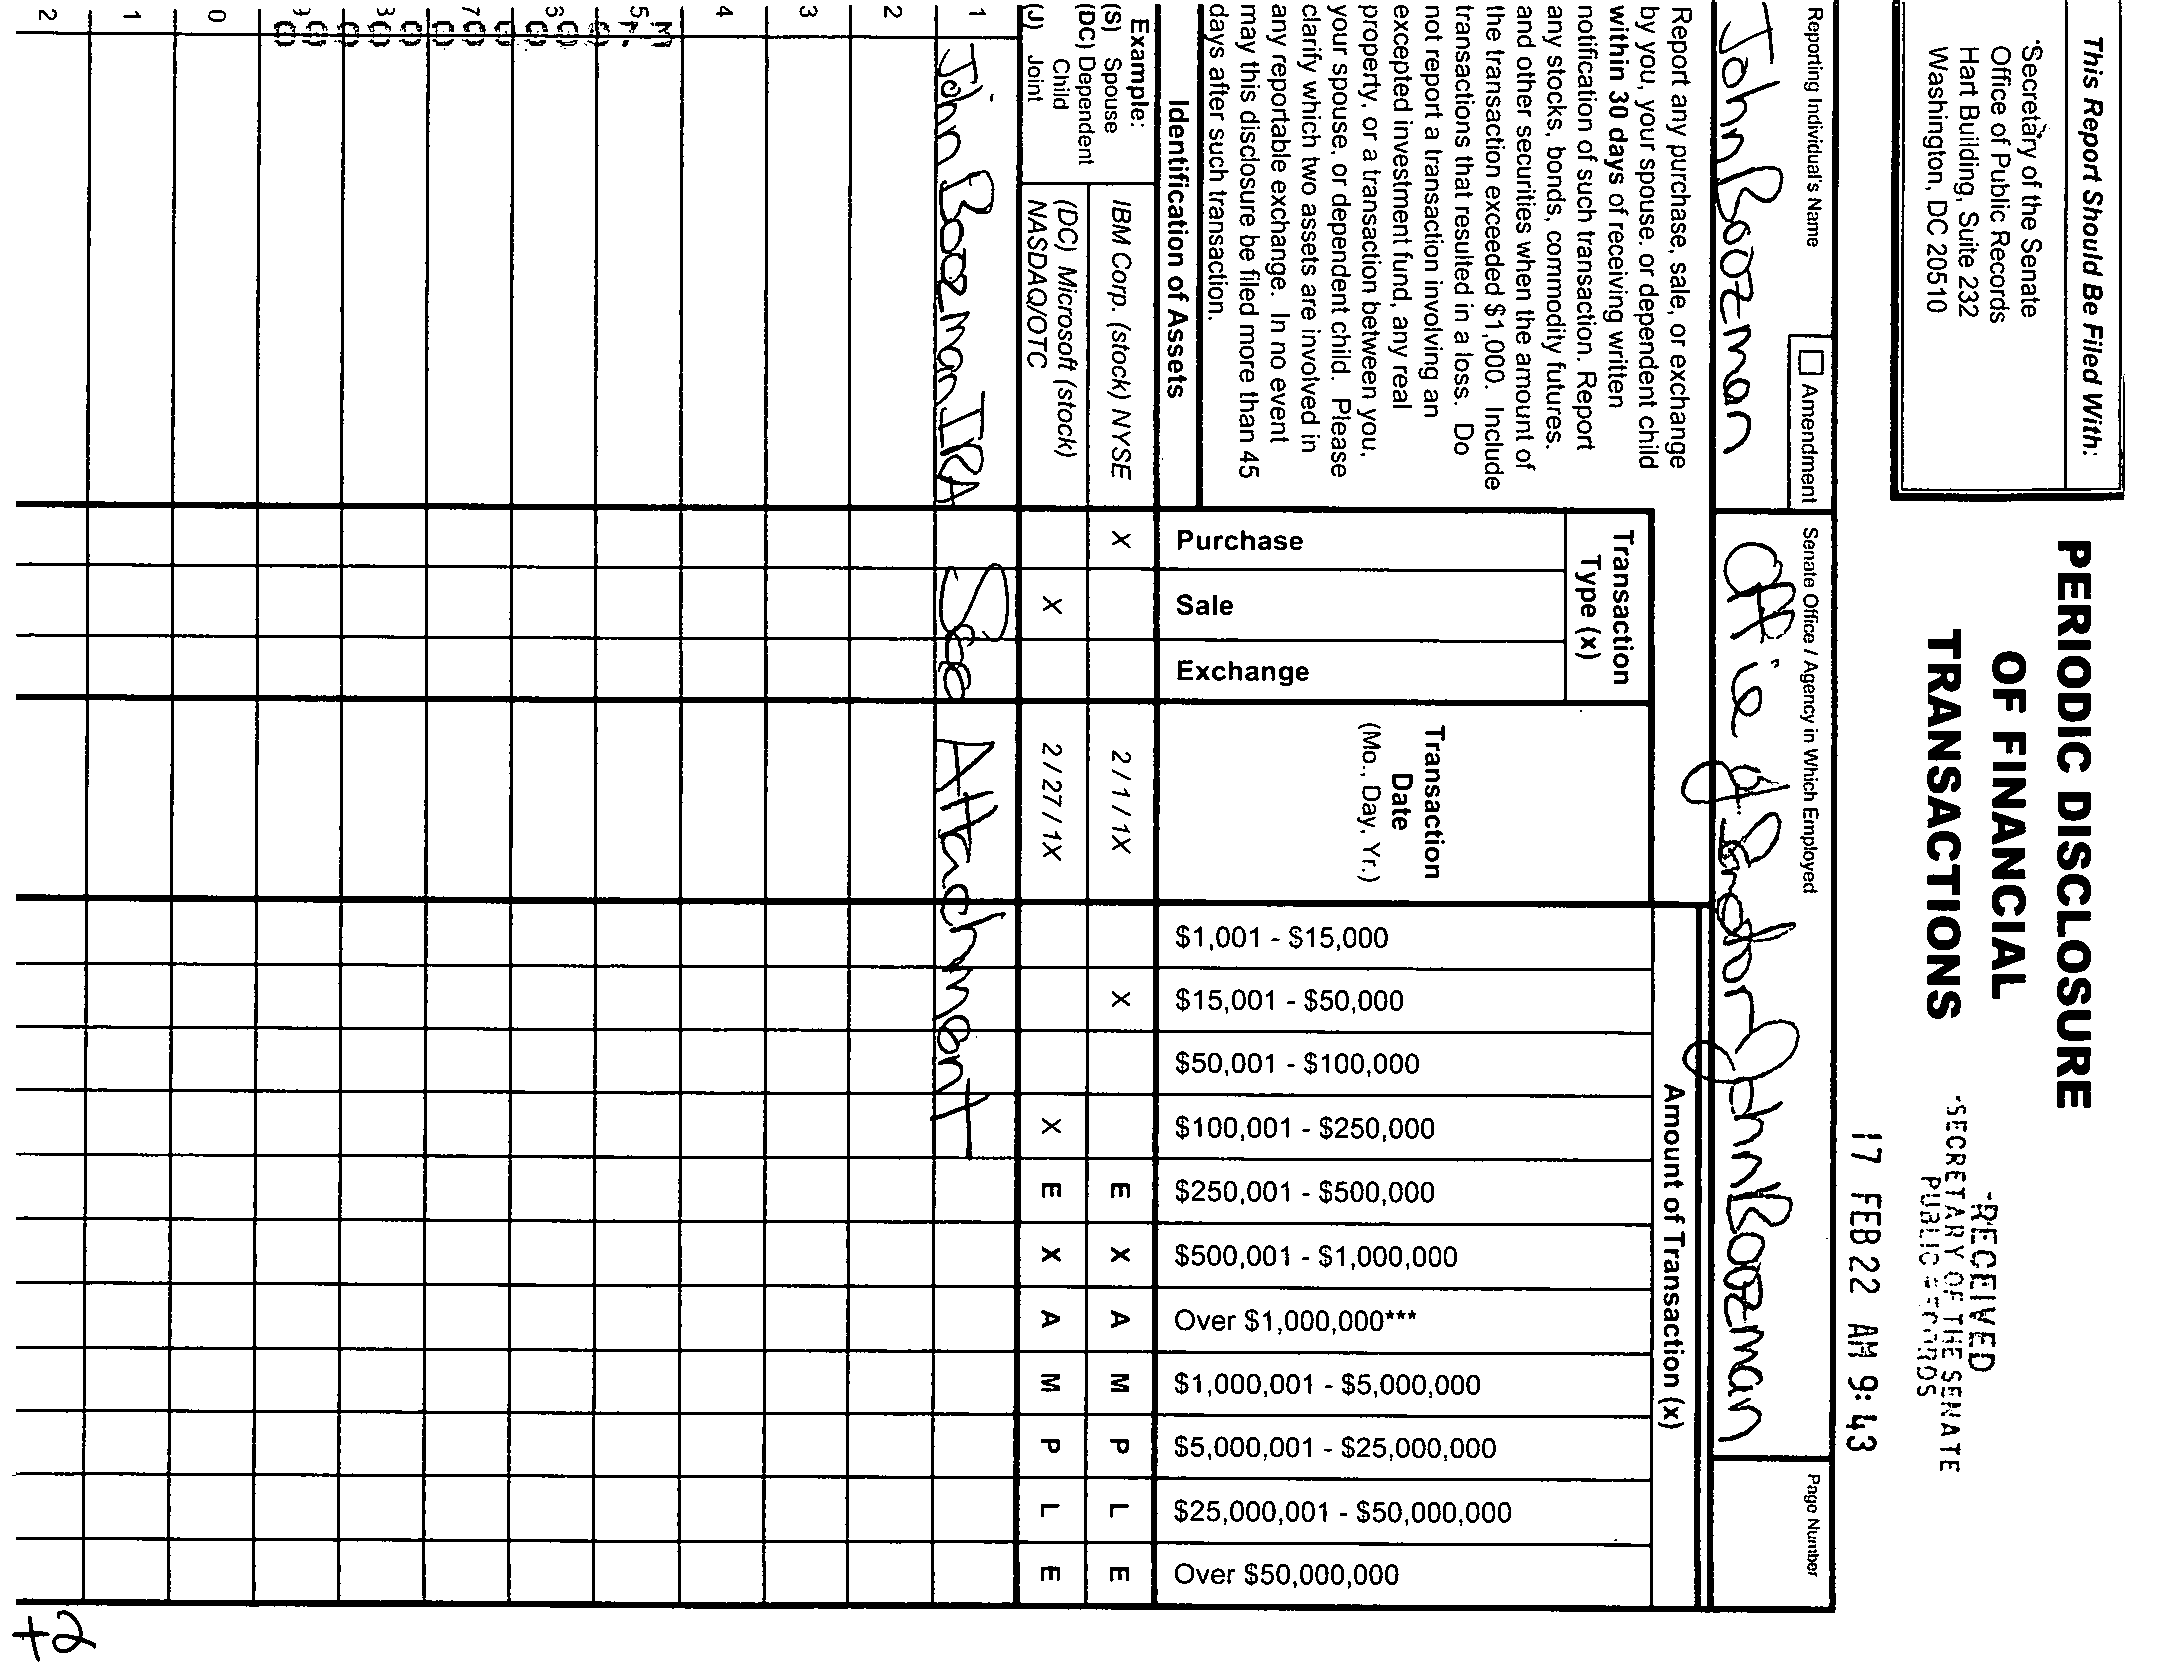 This Report Should Be Filed With:
Secretary of the Senate
Office of Public Records
Hart Building, Suite 232
Washington, DC 20510
PERIODIC DISCLOSURE
OF FINANCIAL
TRANSACTIONS
RECEIVED
SECRETARY OF THE SENATE
PUBLIC RECORDS
17 FEB 22 AM 9:43
Reporting Individual's Name
Amendment
Senate Office / Agency in Which Employed
Page Number
John Boozman
Office of Senator John Boozman
Report any purchase, sale, or exchange
by you, your spouse, or dependent child
within 30 days of receiving written
notification of such transaction. Report
any stocks, bonds, commodity futures,
and other securities when the amount of
the transaction exceeded $1,000. Include
transactions that resulted in a loss. Do
not report a transaction involving an
excepted investment fund, any real
property, or a transaction between you,
your spouse, or dependent child. Please
clarify which two assets are involved in
any reportable exchange. In no event
may this disclosure be filed more than 45
days after such transaction.
Identification of Assets
Transaction
Type (x)
Purchase
Sale
Exchange
Transaction
Date
(Mo., Day, Yr.)
Amount of Transaction (x)
$1,001 - $15,000
$15,001 - $50,000
$50,001 - $100,000
$100,001 - $250,000
$250,001 - $500,000
$500,001 - $1,000,000
Over $1,000,000***
$1,000,001 - $5,000,000
$5,000,001 - $25,000,000
$25,000,001 - $50,000,000
Over $50,000,000
Example:
(S) Spouse
(DC) Dependent
Child
(J) Joint
IBM Corp. (stock) NYSE X 2 / 1 / 1X X E X A M P L E
(DC) Microsoft (stock)
NASDAQ/OTC X 2 / 27 / 1X X E X A M P L E
1 John Boozman IRA See Attachment
2
3
4
5
7
0
1
2
+2